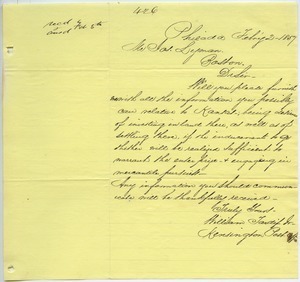 426
recd &
ansd Feb 5th
Philada Feby 2 - 1857
Mr Jos. Lyman
Boston,
Dr Sir -
Will you please furnish
me with all the information you possibly
can relative to Kansas, being desirous
of investing in land there, as well as of
settling there, if the inducement to go
thither will be realized sufficient to
warrant the enterprise & engaging in
mercantile pursuits.
Any information you should communi-
cate will be thankfully received -
Truly Yours,
William Jr.
Kensington Post